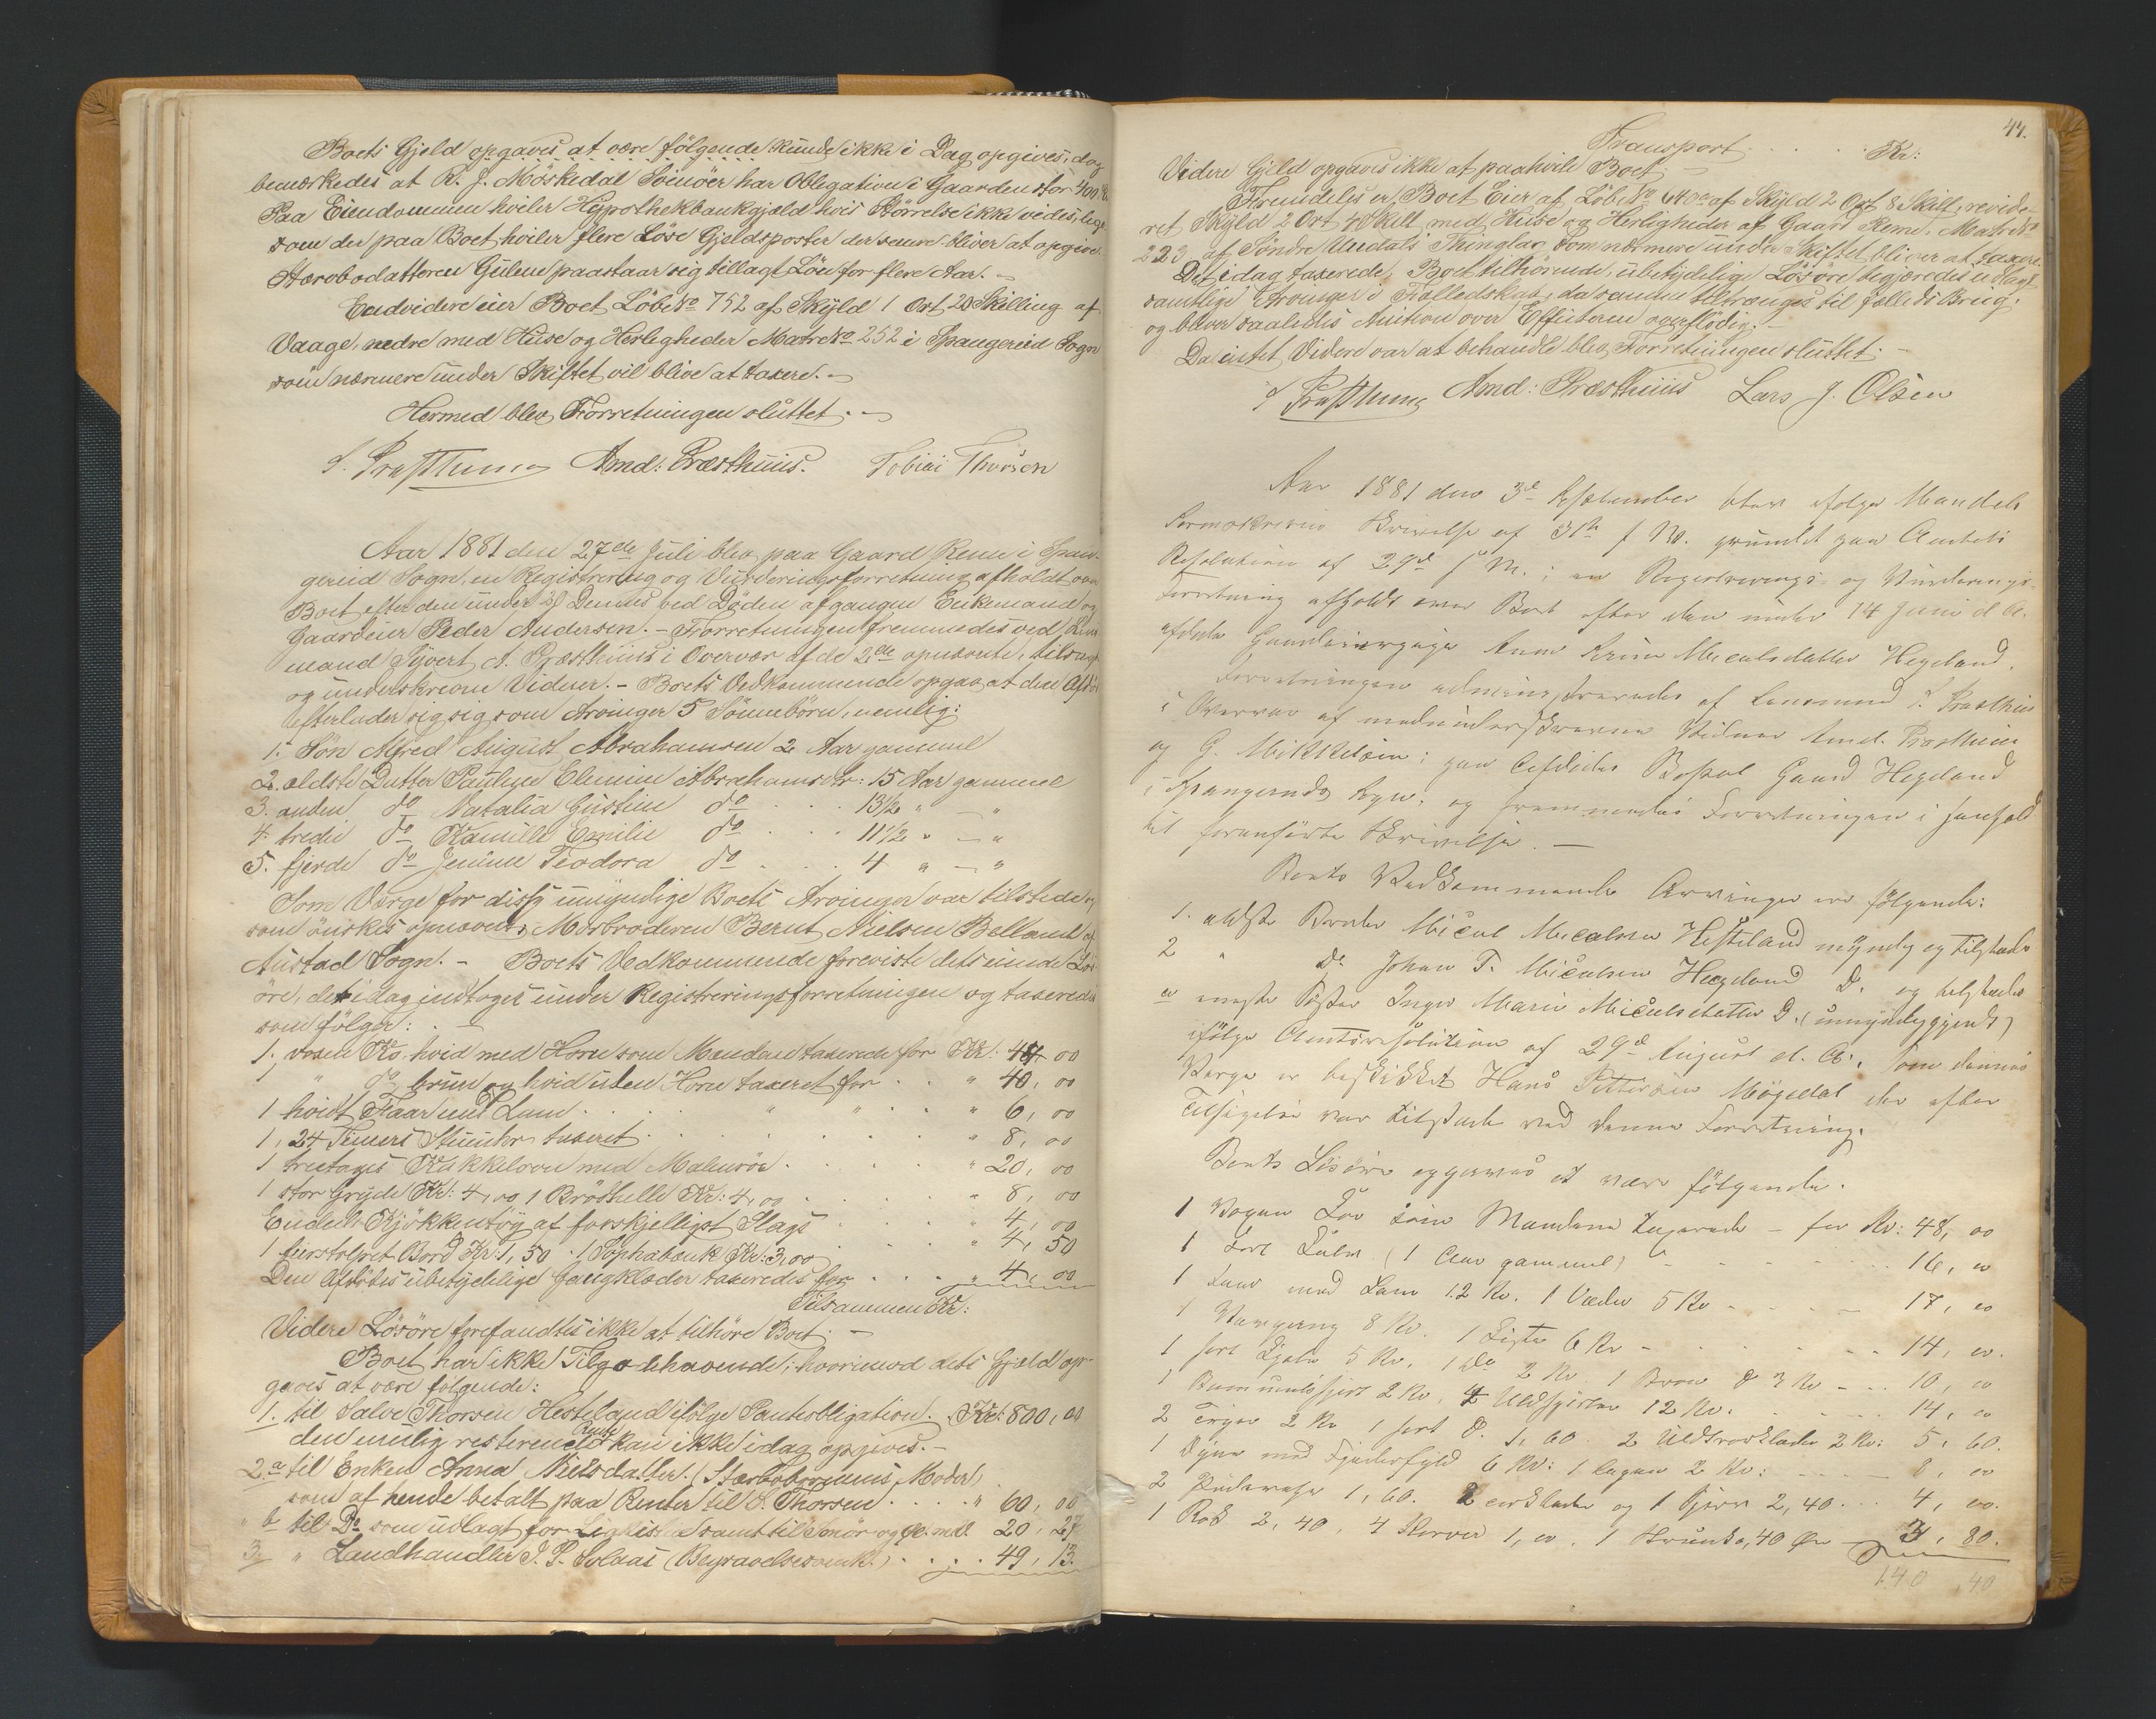 Boets Gjeld opgaves at være følgende kunde ikke i Dag opgives, dog
bemærkedes at R. J. Möskedal Svinöer har Obligation i Gaarden stor 400
Paa Eiendommen hviler Hypothekbankgjæld hvis Störrelse ikke vides, lige
som der paa Boet hviler flere Löse Gjeldsposter der senere bliver at opgive.
Stærbodatteren Guline paastaar sig tillagt Lön for flere Aar. –
Endvidere eier Boet Löbe No 752 af Skyld 1 Ort 20 Skilling af
Vaage, nedre med Huse og Herligheder Matre No 252 i Spangereid Sogn
som nærmere under Skiftet vil blive at taxere. –
Hermed blev Forretningen sluttet. –
S. Præsthuus Amd: Præsthuus. Tobias Thorsen
Aar 1881 den 27de Juli blev paa Gaard Reme i Span-
gereid Sogn, en Registrering og Vurderingsforretning afholdt over
Boet efter den under Dennes ved Döden afgangne Enkemand og
Gaardeier Peder Andersen. – Forretningen fremmedes ved Lens
mand Syvert A. Præsthuus i Overvær af de 2de opnævnte, tilsagte
og underskrevne Vidner. – Boets Vedkommende opgav at den Afdöde
efterlader sig sig som Arvinger 5 Sönnebörn, nemlig:
1. Sön Alfred August Abrahamsen 2 Aar gammel
2. ældste Datter Pauline Elemine Abrahamsdtr: 15 Aar gammel
3. anden do Natalia Gustine do . . 13½ " — "
4. tredie do Kamille Emilie do . . 11½ " — "
5. fjerde do Jenine Teodora do . . . 4 " — "
Som Værge for disse umyndige Boets Arvinger var tilstede og
som önskes opnævnt, Morbroderen Bernt Nielsen Belland af
Austad Sogn. – Boets Vedkommende foreviste dets eiende Lös-
öre, det idag indtages under Registreringsforretningen og taxeredes
som fölger:
1. voxen Ko hvid med Horn som Mendan taxerede for Kr: 48, 00
1 " do brun og hvid uden Horn taxeret for . . " 40, 00
1 hvidt Faar med Lam . . . " 6, 00
1, 24 Timers Stueuhr taxeret . . . " 8, 00
1 treetages Kakkelovn med Malmrör . . . " 20, 00
1 stor Gryde Kr: 4,00 1 Brödhelle Kr: 4,00 . . . " 8, 00
Endeel Kjökkentöy af forskjelligst Slags . . . " 4, 00
1 Bord Kr: 1,50 1 Sophabænk Kr: 3,00 . . . " 4, 50
Den Afdödes ubetydelige Gangklæder taxeredes for . . . " 4, 00
Tilsammen Kr:
Videre Lösöre forefandtes ikke at tilhöre Boet. –
Boet har ikke Tilgodehavende; hvorimod dets Gjeld op-
gaves at være fölgende:
1. til Salve Thorsen Hesteland ifölge Pantobligation. Kr: 800, 00
den mulig resterende Rente kan ikke idag opgives. –
2. a til Enken Anna Nielsdatter. (Stærbobörnenes Moder)
som af hende betalt paa Renter til S. Thorsen . . . " 60, 00
" b til Do som udlagt for Ligkiste samt til Smör og Öl md. 20, 27
3. " Landhandler J. P. Solaas (Begravelsesomk.) . . . 49, 13.
44.
Transport . . . . . Kr:
Videre Gjeld opgaves ikke at paahvile Boet. –
Fremdeles er Boet Eier af Löbe No 640a af Skyld 2 Ort 8 Skill, revide-
ret Skyld 2 Ort 4 Skill med Huse og Herligheder af Gaard Reme. Matre No
223 af Söndre Undals Thinglag, som nærmere under Skiftet bliver at taxere.
Det idag taxerede, Boet tilhörende, ubetydelige Lösöre begjæredes udlagt
samtlige Arvinger i Fælledskab, da samme tiltrænges til fælleds Brug,
og bliver saaledes Auktion over Effekterne overflödig. –
Da intet Videre var at behandle blev Forretningen sluttet. –
S Præsthuus Amd: Præsthuus Lars J. Olsen
Aar 1881 den 3de September blev ifölge Mandals
Sorenskrivers Skrivelse af 31te f M. grundet paa Amtets
Resolution af 29de f M.; en Registrerings- og Vurderings-
Forretning afholdt over Boet efter den under 14 Juni d A.
afdöde Gaardeierpige Anne Karine Micalsdatter Hegeland.
Forretningen administreredes af Lensmand S. Præsthuus
i Overvær af medunderskrevne Vidner Amd. Præsthuus
og G. Mikkelsen; paa Afdödes Bopæl Gaard Hegeland
i Spangereids Sogn. og fremmedes Forretningen i Henhold
til foranförte Skrivelse. –
Boets Vedkommende Arvinger ere fölgende:
1. ældste Broder Mical Micalsen Hesteland myndig og tilstede
2 " Do Johan T. Micalsen Hegeland Do og tilstede
eneste Söster Inger Marie Micalsdatter D. (umyndiggjort)
ifölge Amtsresolution af 29de August d. A. Som dennes
Værge er beskikket Hans Pettersen Mögedal der efter
Tilsigelse var tilstede ved denne Forretning.
Boets Lösöre opgaves at være fölgende.
1 Voxen Ko som Mandan taxerede – for Kr: 48, 00
1 sort Kalv (1 Aar gammel) – . . . . 16, 00
1 Faar med Lam 12 Kr. 1 Væder 5 Kr . . . 17, 00
1 8 Kr. 1 Kiste 6 Kr – . . . . 14, 00.
1 sort Kjole 5 Kr, 1 do 2 Kr. 1 Brun d 3 Kr – . . 10, 00
1 Bommuldsskjört 2 Kr. 4 Uldskjörter 12 Kr. . . . 14, 00
2 Tröyer 2 Kr 1 sort d. 1, 60 2 Uldtörklæder 2 Kr: 5, 60.
1 Dyne med Fjederfyld 6 Kr: 1 Lagen 2 Kr: – 8, 00
2 Pudevaar 1, 60. 2 og 1 2, 40 . . . 4, 00.
1 Rok 2, 40. 4 Kurver 1, 00. 1 40 Öre – 3, 80.
140, 40